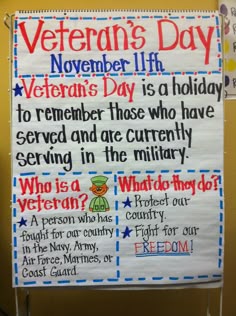 Veteran's Day
November 11th
Veteran's Day is a holiday
to remember those who have
served and are currently
serving in the military.
Who is a
veteran?
A person who has
fought for our country
in the Navy, Army,
Air Force, Marines, or
Coast Guard.
What do they do?
Protect our
country.
Fight for our
FREEDOM!